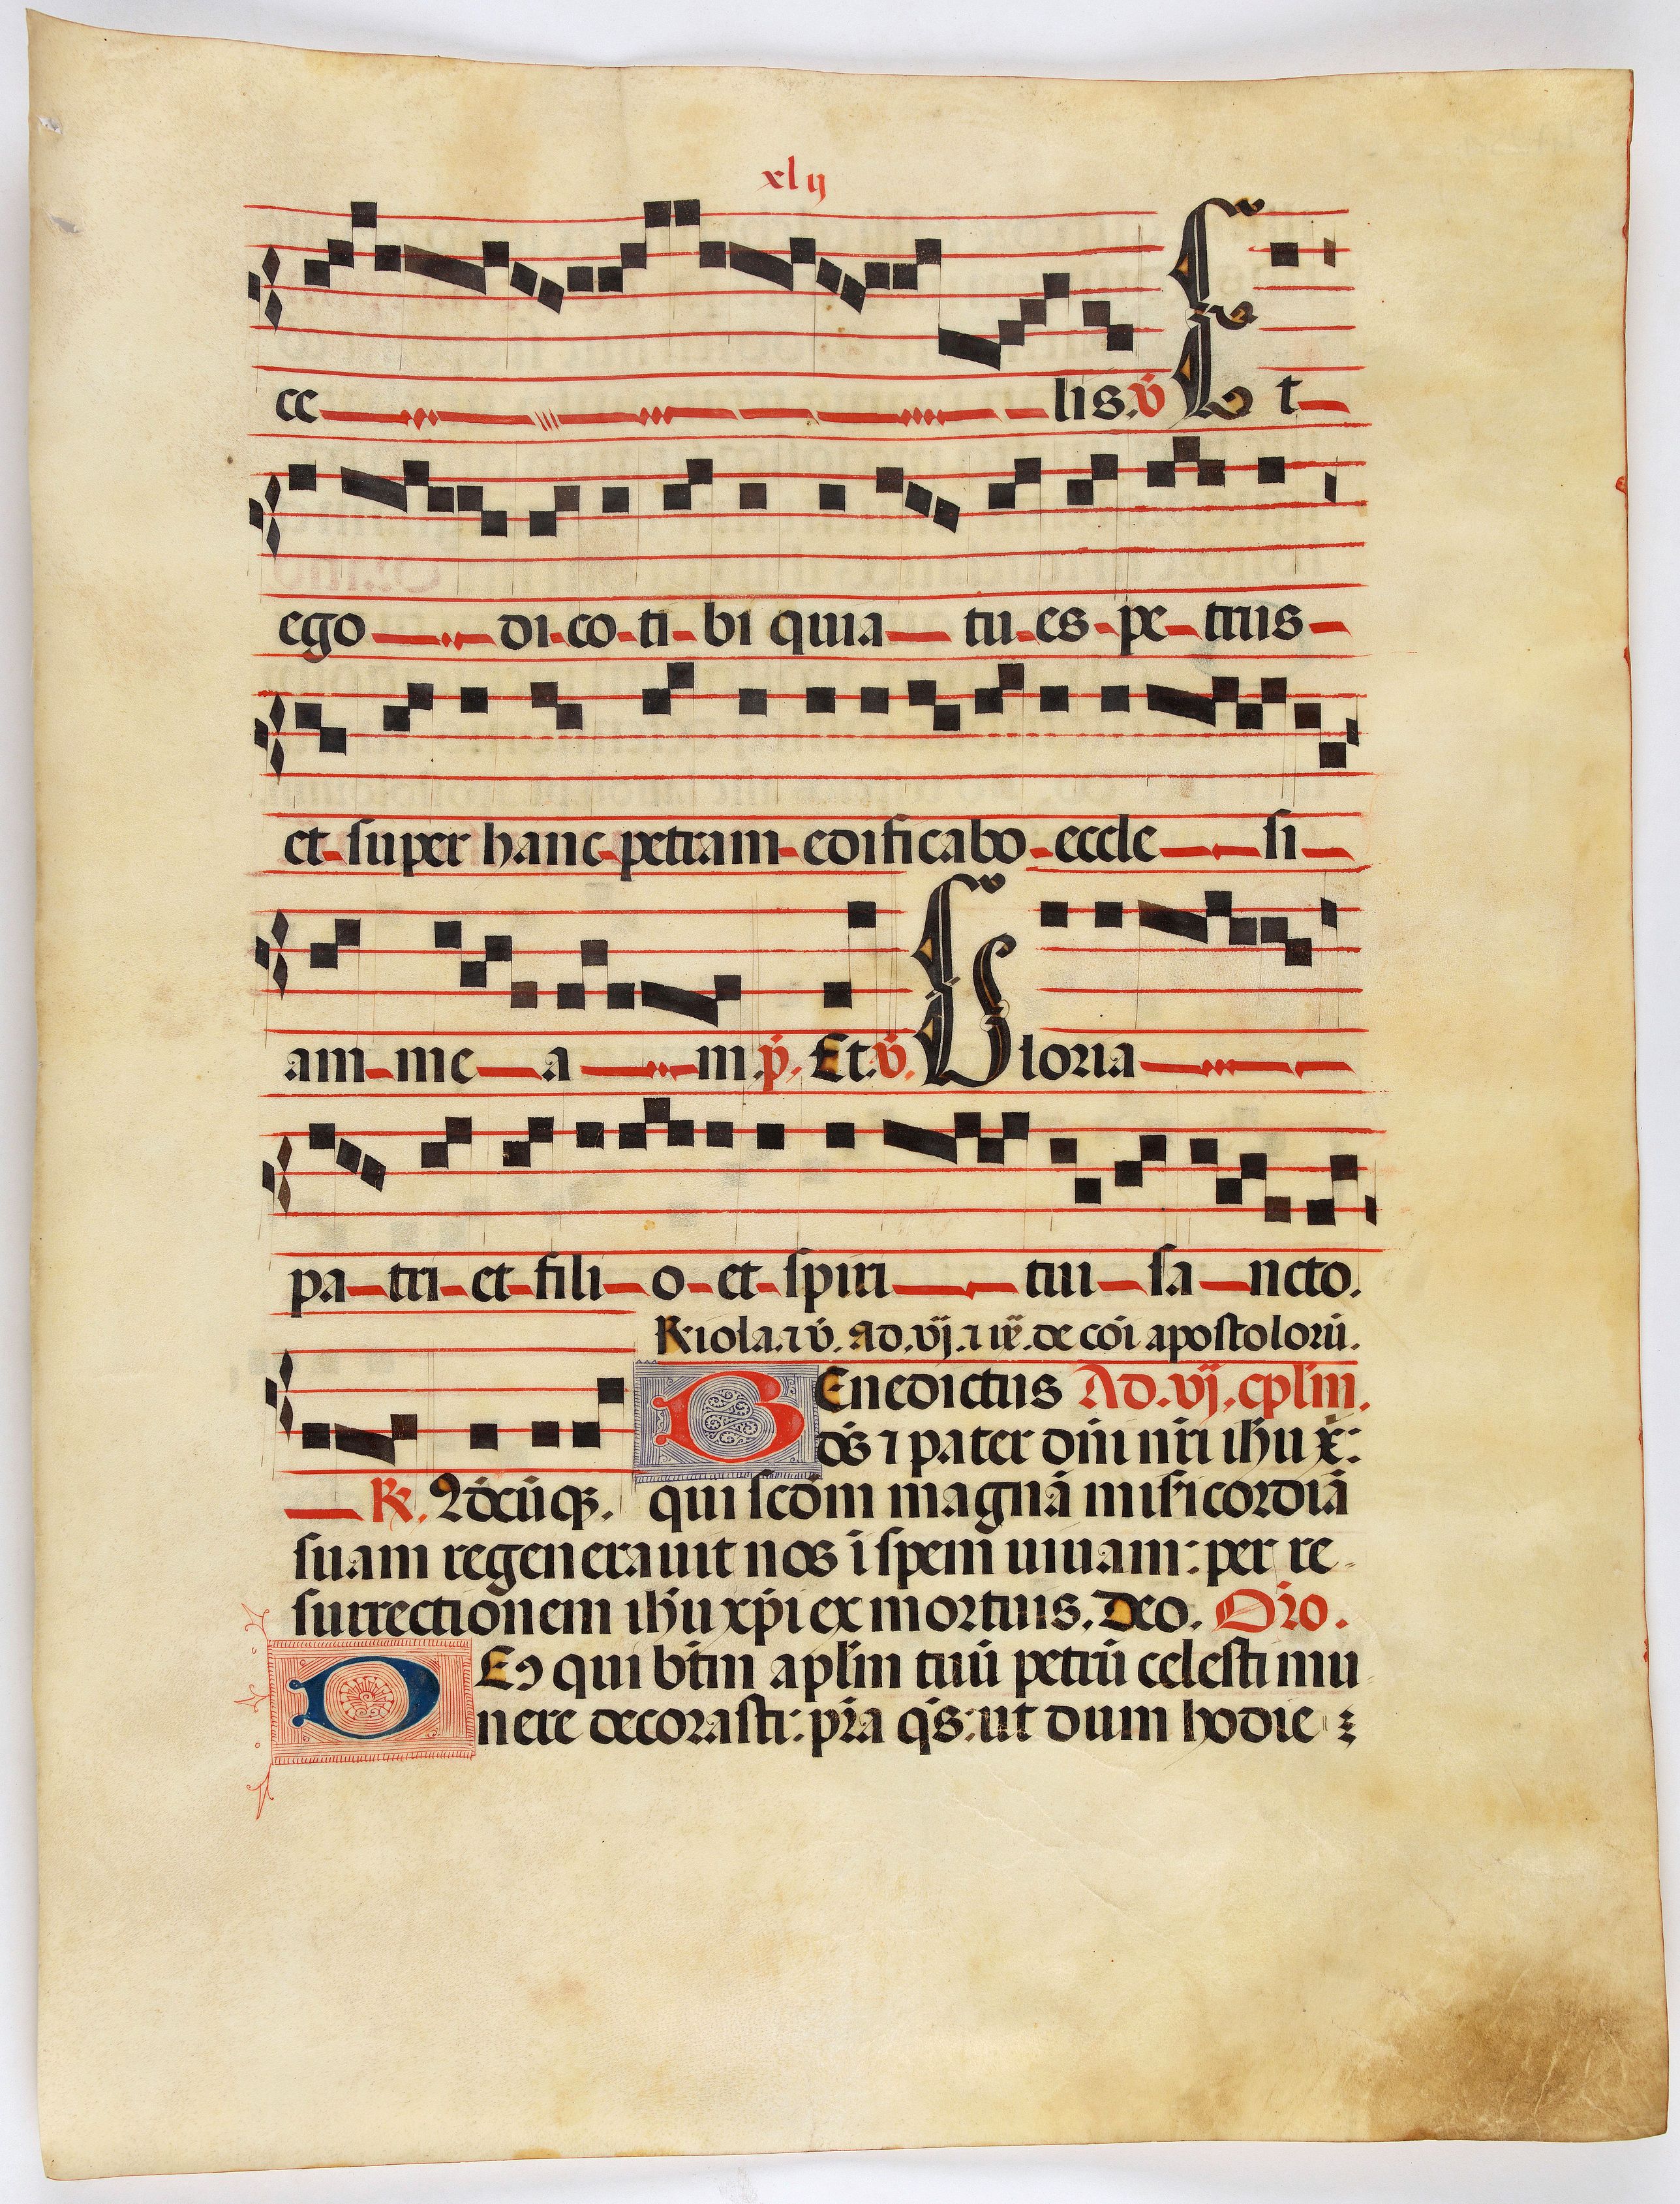 xlij
ce lis. v̇ Et
ego di-co-ti-bi quia tu-es-pe-trus
et-super hanc-petram-edificabo-eccle si
am-me-a m. p̄. Et. v̇. Gloria
pa-tri-et-fili-o-et-spiri tui-sa-ncto.
R iola. ⁊ v̇. Ad. vj. ⁊ ix. de cōi apostolorū.
Benedictus Ad. vj. cpl'm.
ds ⁊ pater dn̄i nr̄i ihu x̄:
R. Qdcūqꝫ. qui scdm magnā misicordiā
suam regenerauit nos ī spem uiuam: per re
surrectionem ihu xp̄i ex mortuis. Deo. Oro.
DEꝰ qui btm aplm tuū petrū celesti mu
nere decorasti: pr̄a qs: ut dum hodie